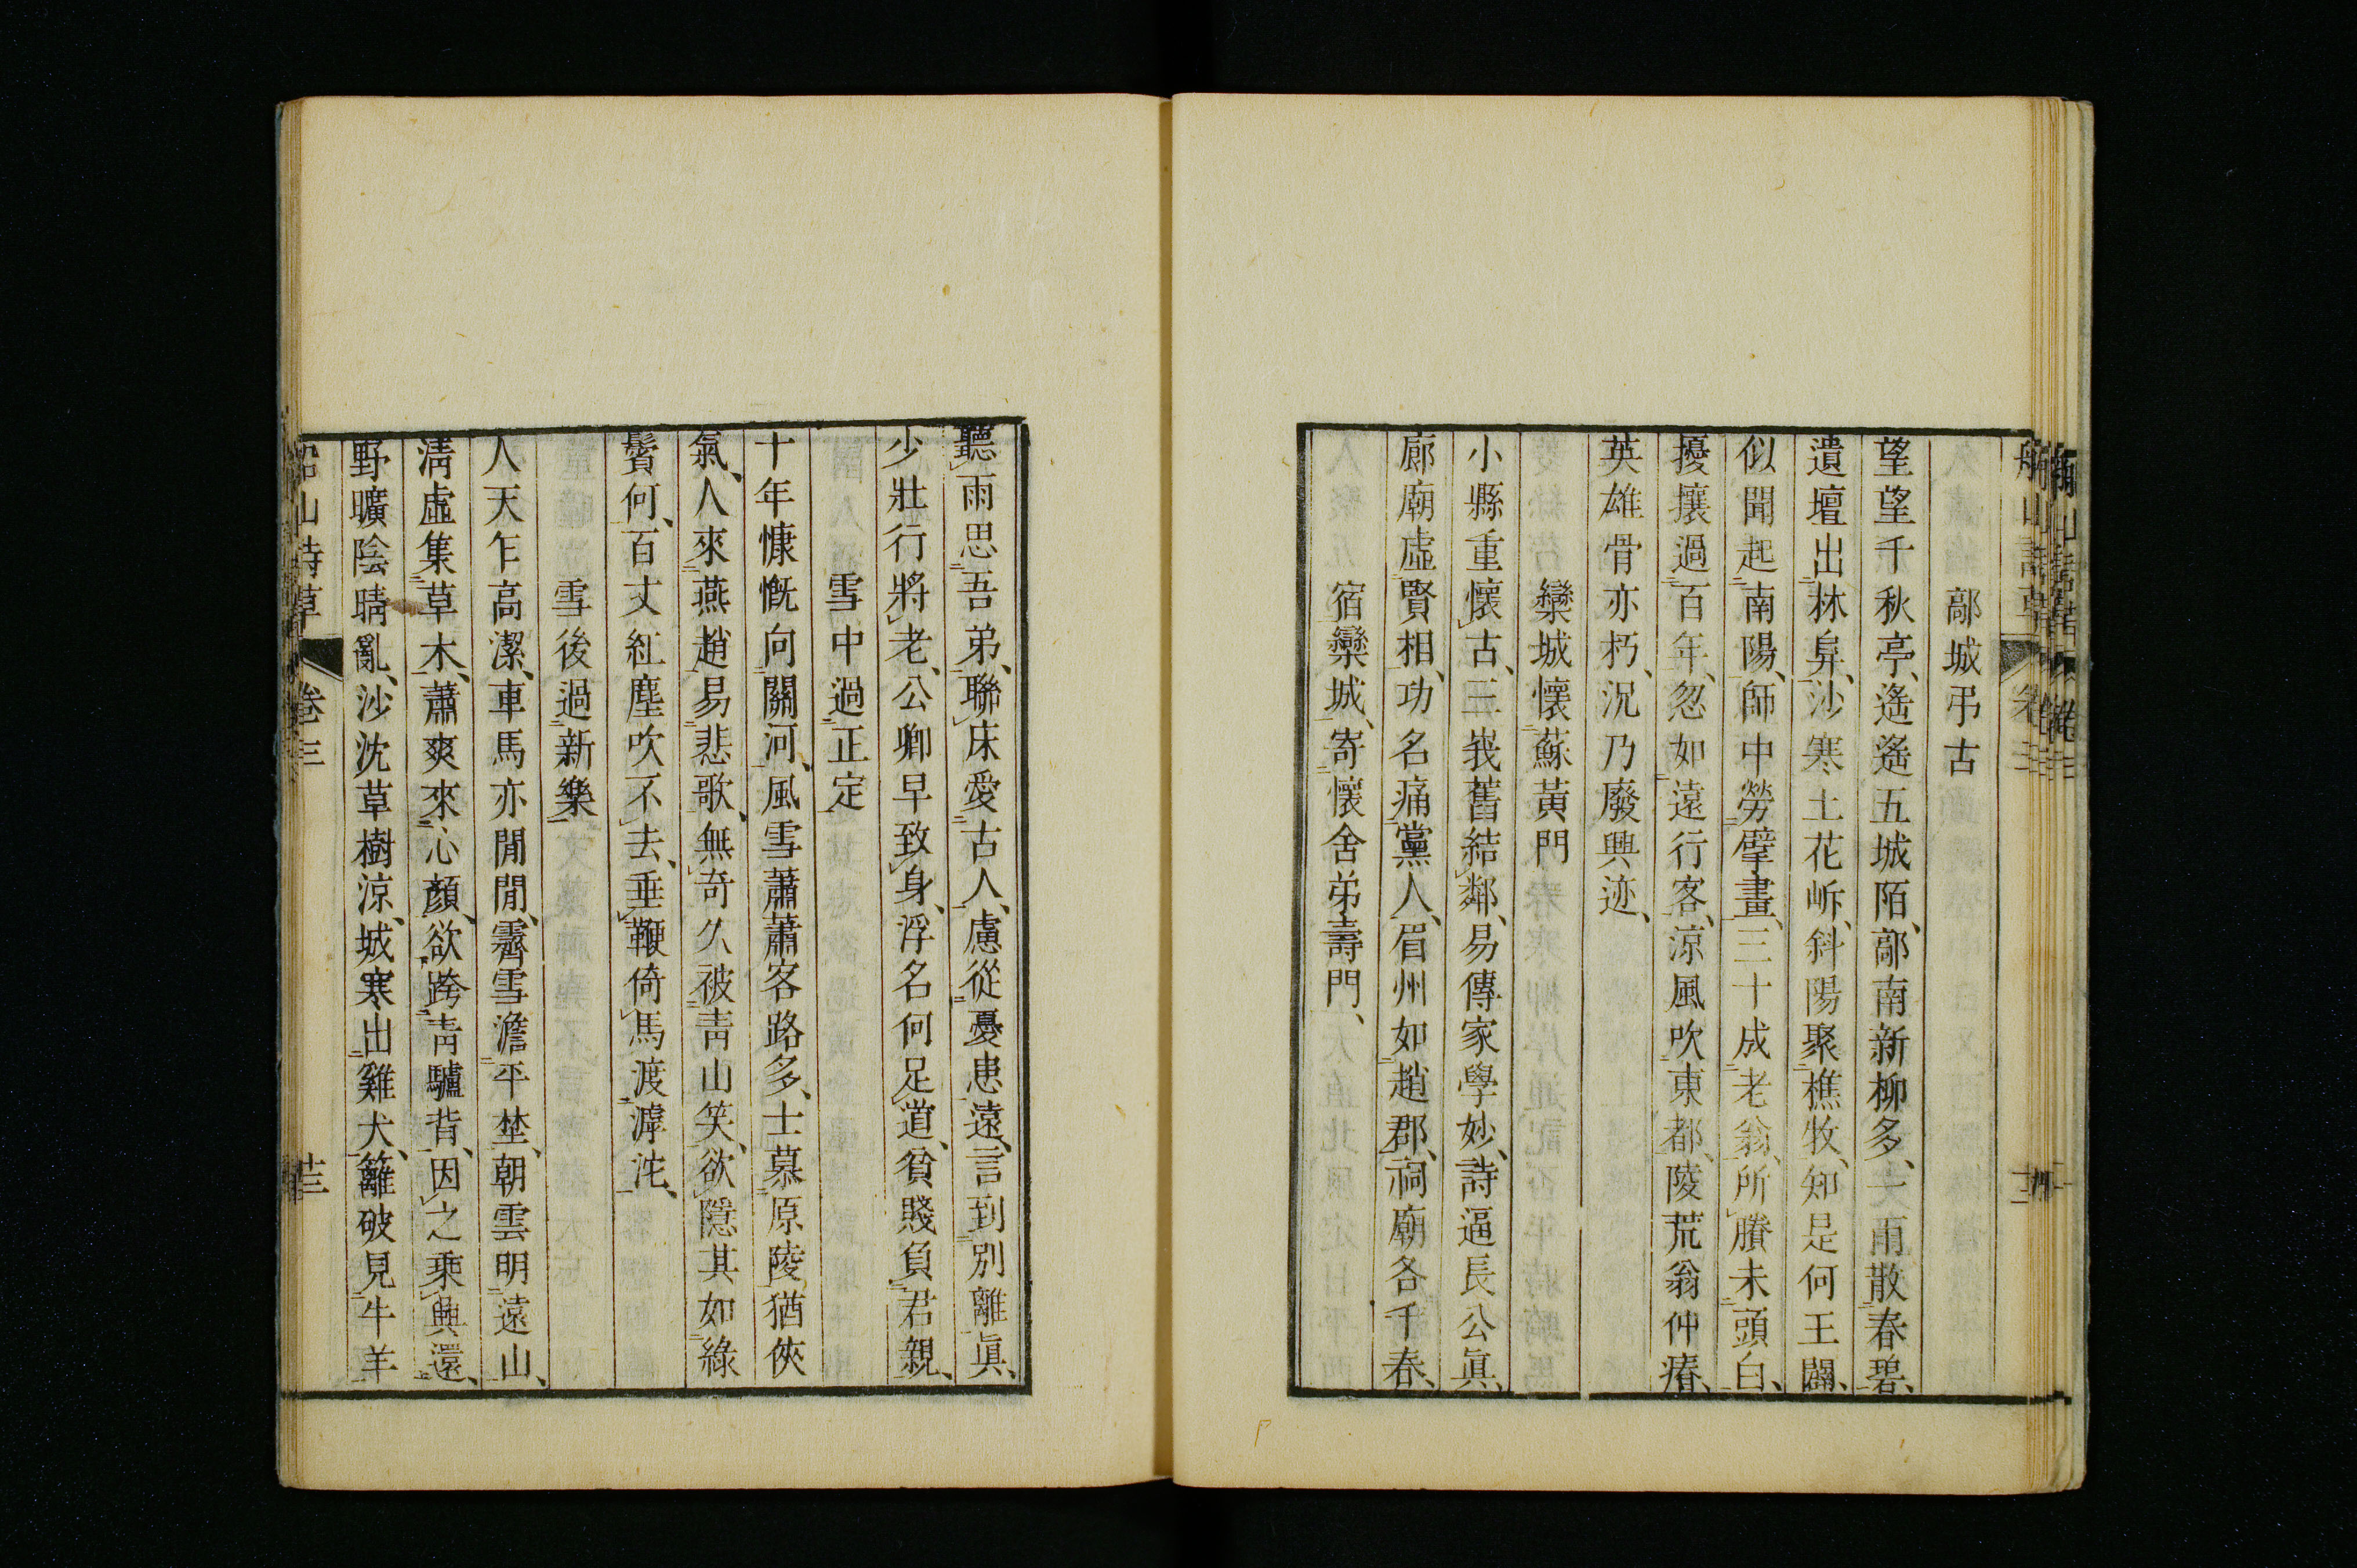 鄗城弔古
望望千秋亭、遙遙五城陌、鄗南新柳多、一雨散春碧、
遺壇出林臯、沙寒土花㟁、斜陽聚樵牧、知是何王闢、
似聞起南陽、師中勞擘畫、三十成老翁、所賸未頭白、
擾攘過百年、忽如遠行客、涼風吹東都、陵荒翁仲瘠、
英雄骨亦朽、況乃廢興迹、
欒城懷蘇黃門
小縣重懷古、三峩舊結鄰、易傳家學妙、詩逼長公眞、
廊廟虛賢相、功名痛黨人、眉州如趙郡、祠廟各千春、
宿欒城、寄懷舍弟壽門、
聽雨思吾弟、聯床愛古人、慮從憂患遠、言到別離眞、
少壯行將老、公卿早致身、浮名何足道、貧賤負君親、
雪中過正定
十年慷慨向關河、風雪蕭蕭客路多、士慕原陵猶俠
氣、人來燕趙易悲歌、無奇久被靑山笑、欲隱其如綠
鬢何、百丈紅塵吹不去、垂鞭倚馬渡滹沱、
雪後過新樂
人天乍高潔、車馬亦閒閒、霽雪澹平埜、朝雲明遠山、
淸虛集草木、蕭爽來心顏、欲跨靑驢背、因之乘興還、
野曠陰晴亂、沙沈草樹涼、城寒出雞犬、籬破見牛羊
船山詩草 卷三 十三